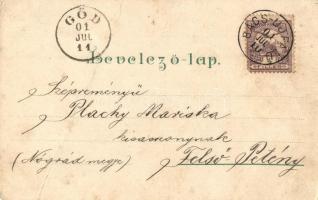 GÖD
01
JUL
11
Levelező-lap.
Szépreményü
Plachy Mariska
kisasszonynak
(Nógrád megye) Felső Petény